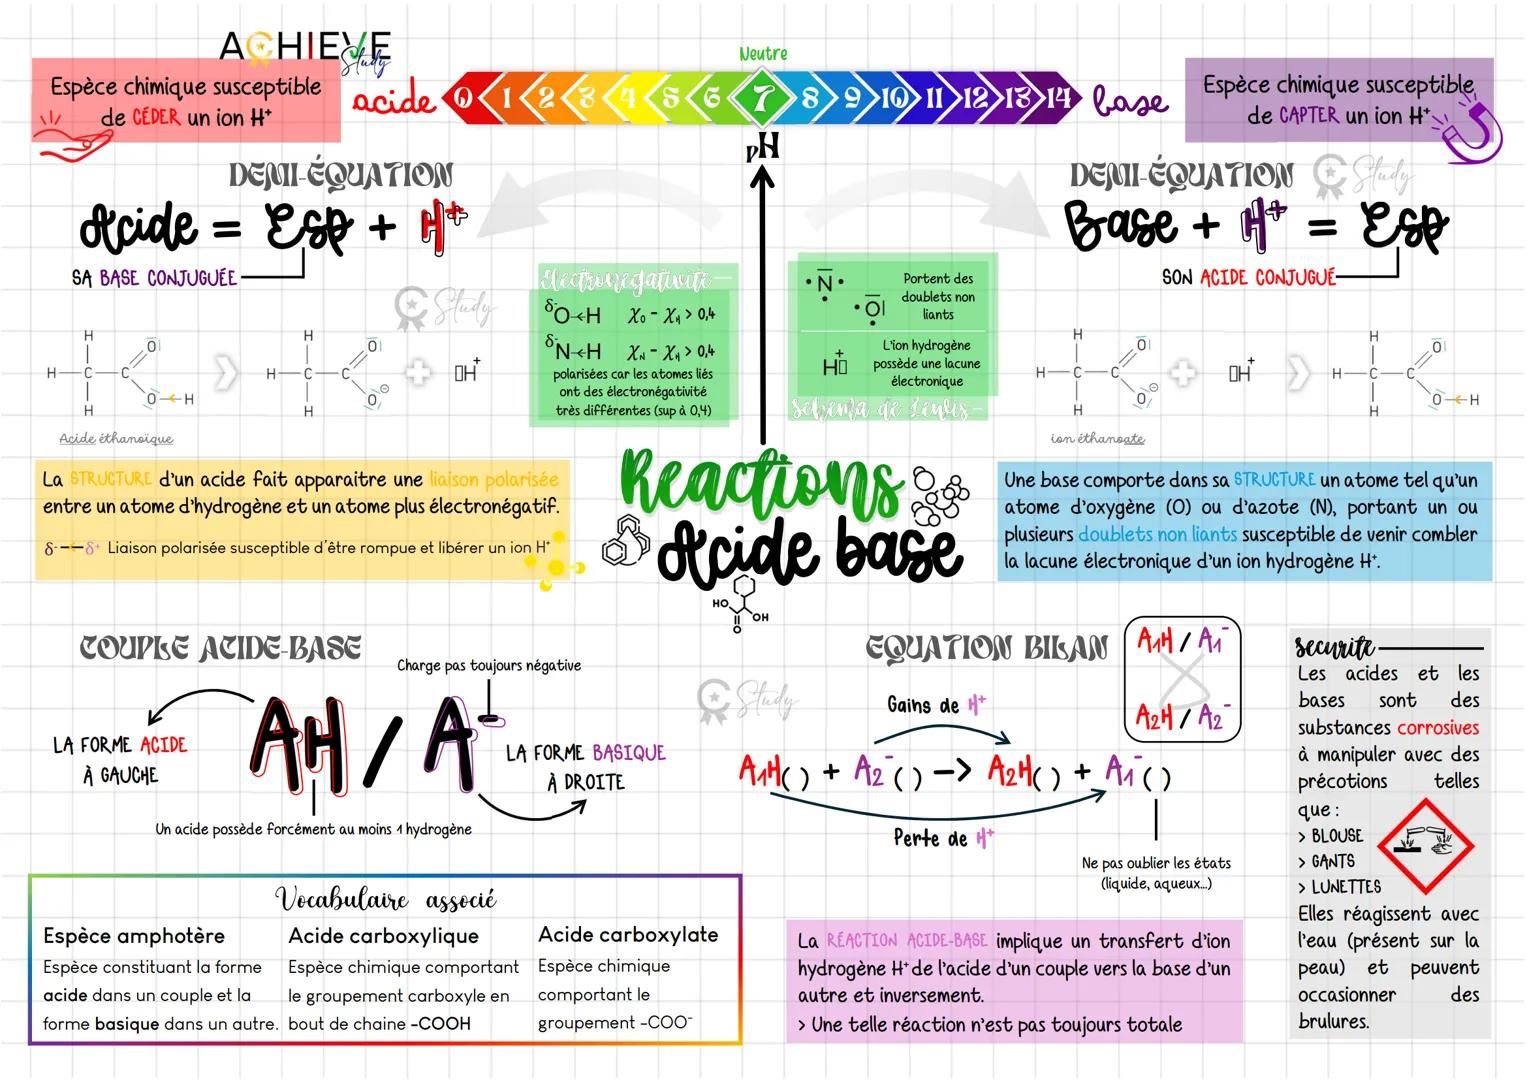 ACHIEVE
Study
Espèce chimique susceptible
de CÉDER un ion H⁺
acide 0 1 2 3 4 5 6 7 8 9 10 11 12 13 14 base
Neutre
pH
Espèce chimique susceptible
de CAPTER un ion H⁺
DEMI-ÉQUATION
Acide = Esp + H⁺
SA BASE CONJUGUÉE
DEMI-ÉQUATION
Study
Base + H⁺ = Esp
SON ACIDE CONJUGUÉ
Study
Électronegativité
δ⁻O H χO - χH > 0,4
δ⁻N H χN - χH > 0,4
polarisées car les atomes liés
ont des électronégativité
très différentes (sup à 0,4)
N O
Portent des
doublets non
liants
H⁺
L'ion hydrogène
possède une lacune
électronique
Schéma de Lewis
H H C C O O H H
H H C C O O⊖ H
H⁺
Acide éthanoïque
H H C C O O⊖ H
H⁺
H H C C O O H H
ion éthanoate
La STRUCTURE d'un acide fait apparaitre une liaison polarisée
entre un atome d'hydrogène et un atome plus électronégatif.
δ⁻ δ⁺ Liaison polarisée susceptible d'être rompue et libérer un ion H⁺
Reactions
Acide base
HO
OH
O
Une base comporte dans sa STRUCTURE un atome tel qu'un
atome d'oxygène (O) ou d'azote (N), portant un ou
plusieurs doublets non liants susceptible de venir combler
la lacune électronique d'un ion hydrogène H⁺.
COUPLE ACIDE-BASE
Charge pas toujours négative
LA FORME ACIDE
À GAUCHE
AH / A⁻
LA FORME BASIQUE
À DROITE
Un acide possède forcément au moins 1 hydrogène
EQUATION BILAN
A₁H / A₁⁻
A₂H / A₂⁻
Study
Gains de H⁺
A₁H( ) + A₂⁻( ) -> A₂H( ) + A₁⁻( )
Perte de H⁺
Ne pas oublier les états
(liquide, aqueux...)
securite
Les acides et les
bases sont des
substances corrosives
à manipuler avec des
précotions telles
que :
> BLOUSE
> GANTS
> LUNETTES
Elles réagissent avec
l'eau (présent sur la
peau) et peuvent
occasionner des
brulures.
Vocabulaire associé
Espèce amphotère
Espèce constituant la forme
acide dans un couple et la
forme basique dans un autre.
Acide carboxylique
Espèce chimique comportant
le groupement carboxyle en
bout de chaine -COOH
Acide carboxylate
Espèce chimique
comportant le
groupement -COO⁻
La RÉACTION ACIDE-BASE implique un transfert d'ion
hydrogène H⁺ de l'acide d'un couple vers la base d'un
autre et inversement.
> Une telle réaction n'est pas toujours totale